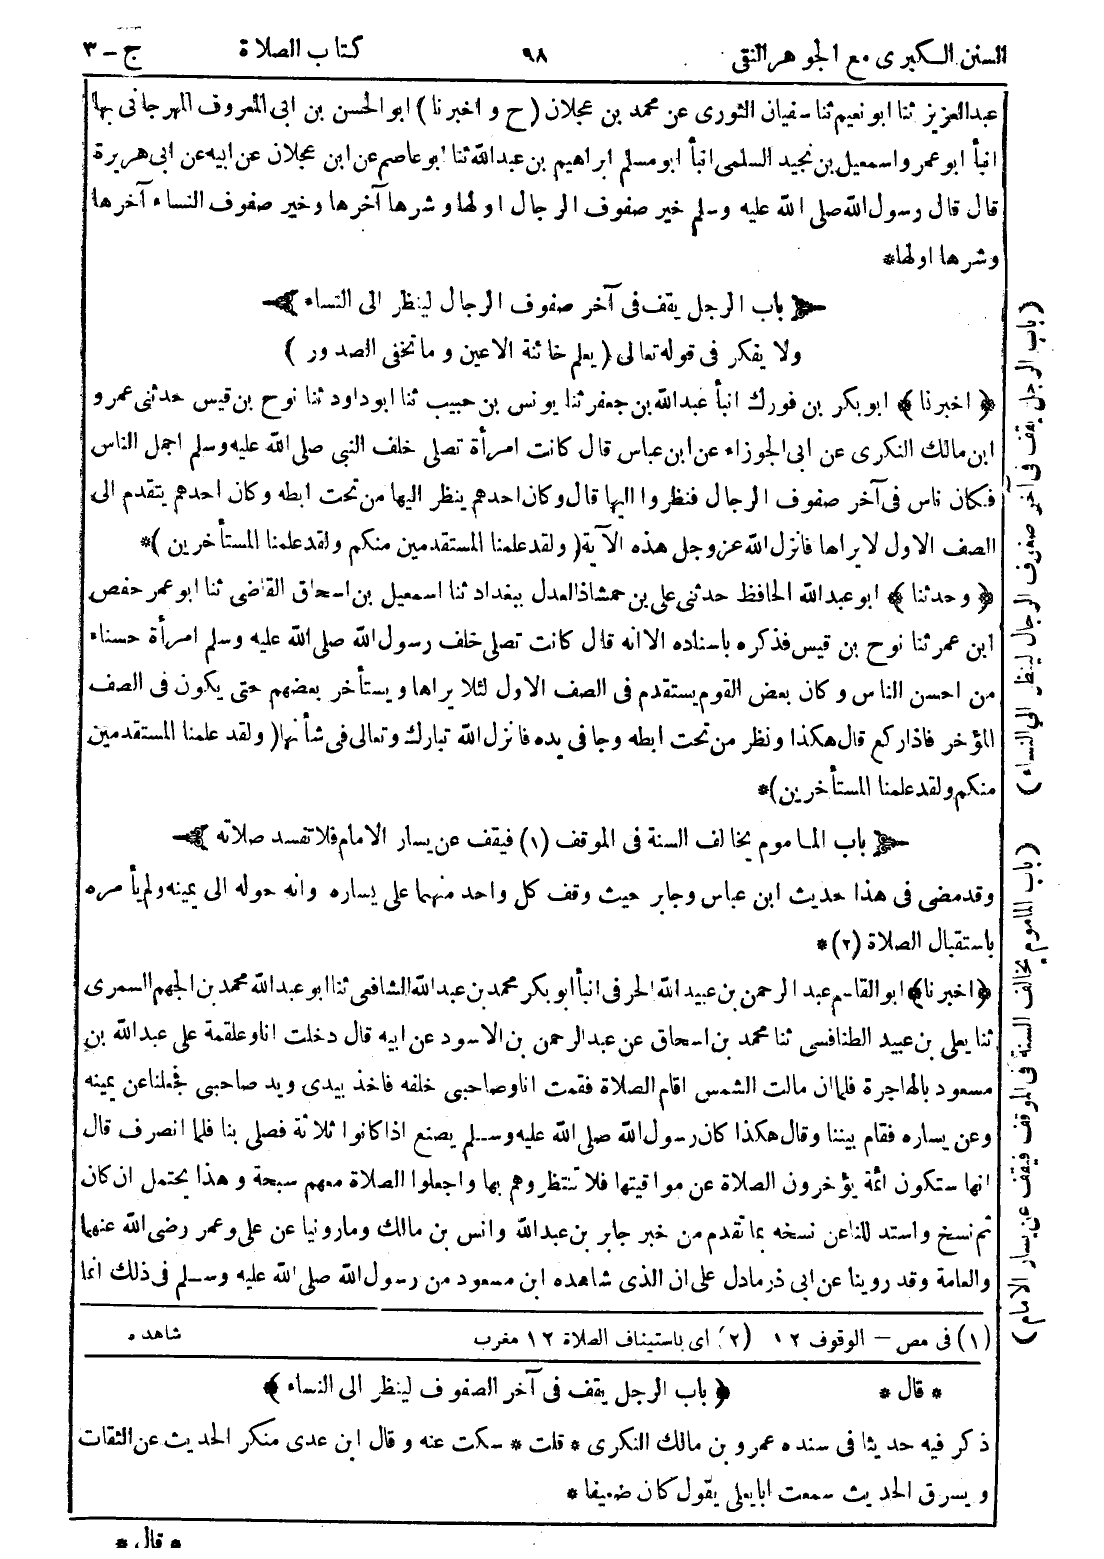 السنن الكبرى مع الجوهر النقى ٩٨ كتاب الصلاة ج - ٣
عبد العزيز ثنا ابو نعيم ثنا سفيان الثورى عن محمد بن عجلان (ح و اخبرنا) ابو الحسن بن ابى المعروف المهرجانى بها
انبأ ابو عمرو اسمعيل بن نجيد السلمى انبأ ابو مسلم ابراهيم بن عبد الله ثنا ابو عاصم عن ابن عجلان عن ابيه عن ابى هريرة
قال قال رسول الله صلى الله عليه وسلم خير صفوف الرجال اولها وشرها آخرها وخير صفوف النساء آخرها
وشرها اولها *
باب الرجل يقف فى آخر صفوف الرجال لينظر الى النساء
ولا يفكر فى قوله تعالى (يعلم خائنة الاعين وما تخفى الصدور)
﴿ اخبرنا ﴾ ابو بكر بن فورك انبأ عبد الله بن جعفر ثنا يونس بن حبيب ثنا ابو داود ثنا نوح بن قيس حدثنى عمرو
ابن مالك النكرى عن ابى الجوزاء عن ابن عباس قال كانت امرأة تصلى خلف النبى صلى الله عليه وسلم اجمل الناس
فكان ناس فى آخر صفوف الرجال فنظروا اليها قال وكان احدهم ينظر اليها من تحت ابطه وكان احدهم يتقدم الى
الصف الاول لا يراها فانزل الله عزوجل هذه الآية ( ولقد علمنا المستقدمين منكم ولقد علمنا المستأخرين ) *
﴿ وحدثنا ﴾ ابو عبد الله الحافظ حدثنى على بن حمشاذ العدل ببغداد ثنا اسمعيل بن اسحاق القاضى ثنا ابو عمر حفص
ابن عمر ثنا نوح بن قيس فذكره باسناده الا انه قال كانت تصلى خلف رسول الله صلى الله عليه وسلم امرأة حسناء
من احسن الناس وكان بعض القوم يستقدم فى الصف الاول لئلا يراها ويستأخر بعضهم حتى يكون فى الصف
المؤخر فاذا ركع قال هكذا ونظر من تحت ابطه وجافى يده فانزل الله تبارك وتعالى فى شأنها ( ولقد علمنا المستقدمين
منكم ولقد علمنا المستأخرين ) *
باب المأموم يخالف السنة فى الموقف (١) فيقف عن يسار الامام فلا تفسد صلاته
وقد مضى فى هذا حديث ابن عباس وجابر حيث وقف كل واحد منهما على يساره وانه حوله الى يمينه ولم يأمره
باستقبال الصلاة (٢) *
﴿ اخبرنا ﴾ ابو القاسم عبد الرحمن بن عبيد الله الحرفى انبأ ابو بكر محمد بن عبد الله الشافعى ثنا ابو عبد الله محمد بن الجهم السمرى
ثنا يعلى بن عبيد الطنافسى ثنا محمد بن اسحاق عن عبد الرحمن بن الاسود عن ابيه قال دخلت انا وعلقمة على عبد الله بن
مسعود بالهاجرة فلما ان مالت الشمس اقام الصلاة فقمت انا وصاحبى خلفه فاخذ بيدى ويد صاحبى فجعلنا عن يمينه
وعن يساره فقام بيننا وقال هكذا كان رسول الله صلى الله عليه وسلم يصنع اذا كانوا ثلاثة فصلى بنا فلما انصرف قال
انها ستكون ائمة يؤخرون الصلاة عن مواقيتها فلا تنتظروهم بها واجعلوا الصلاة معهم سبحة وهذا يحتمل ان كان
ثم نسخ واستد للنا عن نسخه بما تقدم من خبر جابر بن عبد الله وانس بن مالك وما روينا عن على وعمر رضى الله عنهما
والعامة وقد روينا عن ابى ذر ما دل على ان الذى شاهده ابن مسعود من رسول الله صلى الله عليه وسلم فى ذلك انما
(١) فى مص - الوقوف ١٢ (٢) اى باستيناف الصلاة ١٢ مغرب شاهده
* قال * ﴿ باب الرجل يقف فى آخر الصفوف لينظر الى النساء ﴾
ذكر فيه حديثا فى سنده عمرو بن مالك النكرى * قلت * سكت عنه وقال ابن عدى منكر الحديث عن الثقات
ويسرق الحديث سمعت ابا يعلى يقول كان ضعيفا *
* قال *
(باب الرجل يقف فى آخر صفوف الرجال لينظر الى النساء)
(باب المأموم يخالف السنة فى الموقف فيقف عن يسار الامام)